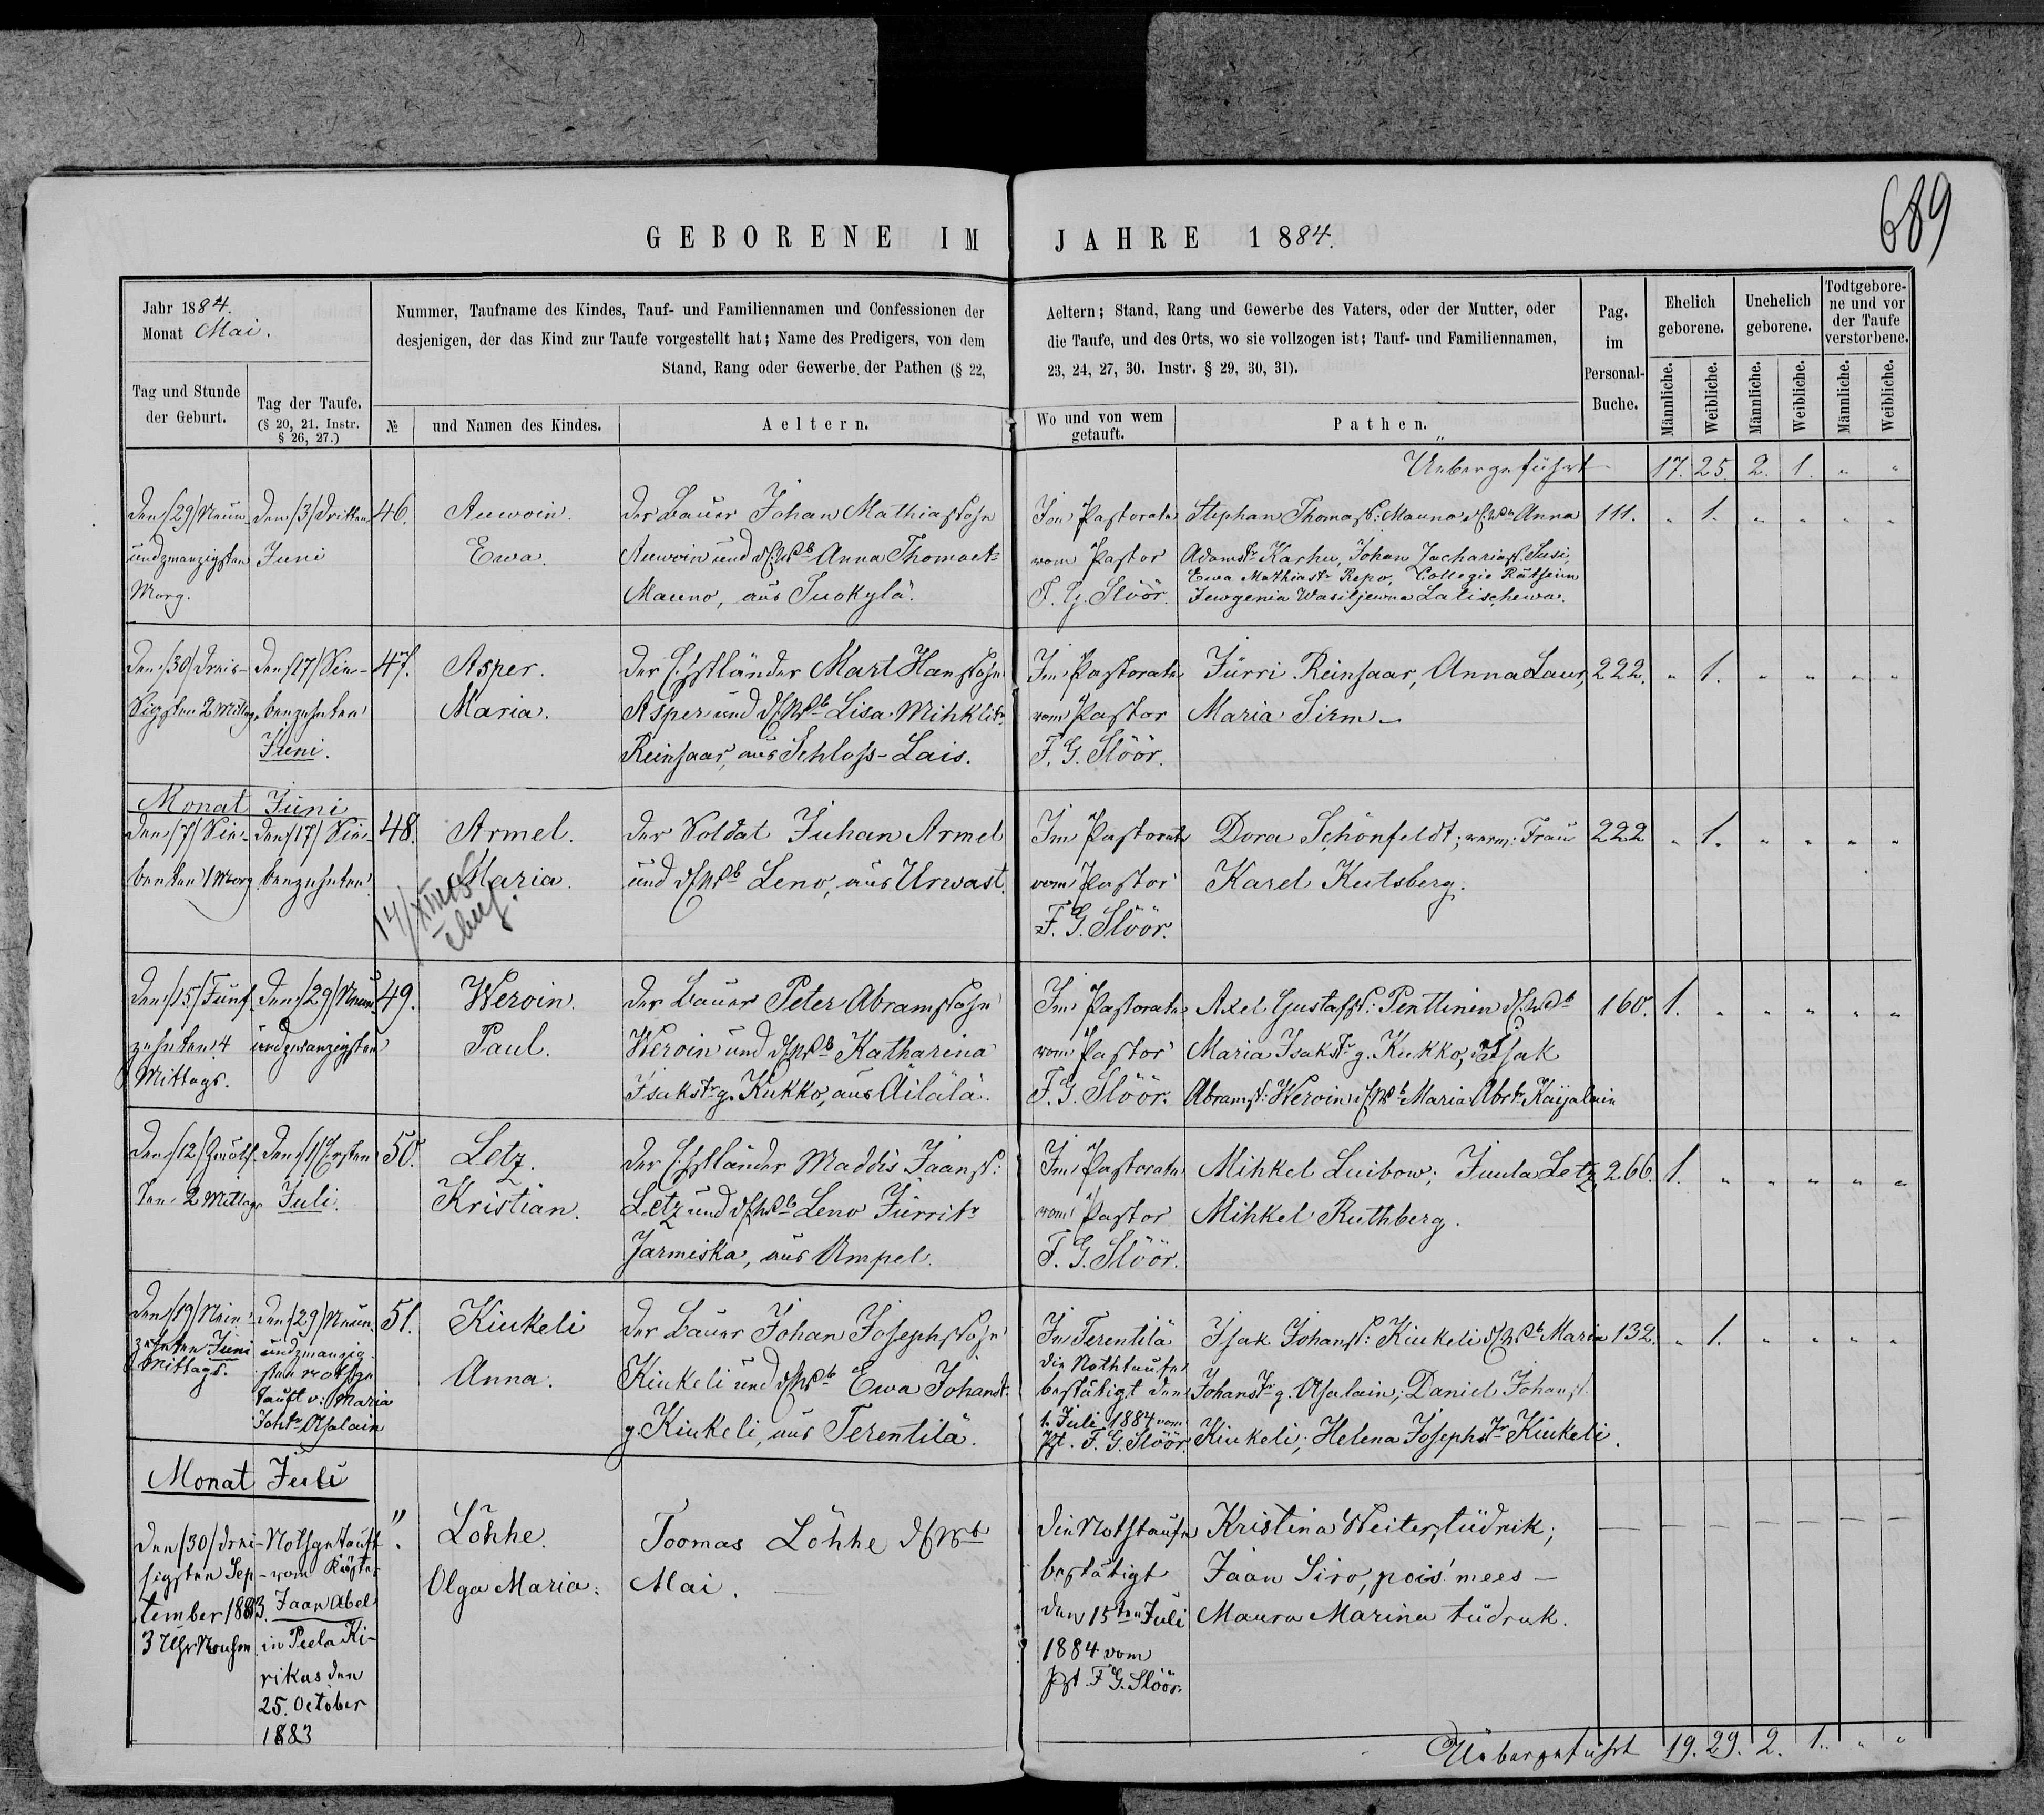 689
GEBORENE IM JAHRE 1884.
Jahr 1884.
Monat Mai.
Nummer, Taufname des Kindes, Tauf- und Familiennamen und Confessionen der
desjenigen, der das Kind zur Taufe vorgestellt hat; Name des Predigers, von dem
Stand, Rang oder Gewerbe der Pathen (§ 22,
Aeltern; Stand, Rang und Gewerbe des Vaters, oder der Mutter, oder
die Taufe, und des Orts, wo sie vollzogen ist; Tauf- und Familiennamen,
23, 24, 27, 30. Instr. § 29, 30, 31).
Pag.
im
Personal-
Buche.
Ehelich
geborene.
Unehelich
geborene.
Todtgebore-
ne und vor
der Taufe
verstorbene.
Tag und Stunde
der Geburt.
Tag der Taufe.
(§ 20, 21. Instr.
§ 26, 27.)
№
und Namen des Kindes.
Aeltern.
Wo und von wem
getauft.
Pathen.
Männliche.
Weibliche.
Männliche.
Weibliche.
Männliche.
Weibliche.
Uebergeführt 17. 25. 2. 1. " "
Den /29/ Neun-
undzwanzigsten
Morg.
Den /3/ Dritten
Juni
46.
Auwoin.
Ewa.
Der Bauer Johan Mathiassohn
Auwoin und Anna Thomastr
Mauno, aus Suokylä.
Im Pastorate
vom Pastor
F. G. Slöör.
Stephan Thomass: Mauno Anna
Adamstr Karhu, Johan Zachariass: Susi,
Ewa Mathiastr Repo, Collegie Räthsinn
Jewgenia Wasiljewna Latischewa.
111. " 1. " " " "
Den /30/ Dreis-
sigsten 2 Mittag.
Den /17/ Sie-
benzehnten
Juni.
47.
Asper.
Maria.
Der Ehstländer Mart Hanssohn
Asper und Lisa Mihklitr
Reinsaar, aus Schloss-Lais.
Im Pastorate
vom Pastor
F. G. Slöör.
Jürri Reinsaar, Anna Laur,
Maria Sirm.
222. " 1. " " " "
Monat Juni
Den /7/ Sie-
benten 1 Morg
Den /17/ Sie-
benzehnten
48.
Armel.
Maria.
Der Soldat Juhan Armel
und Leno, aus Urwast.
Im Pastorate
vom Pastor
F. G. Slöör.
Dora Schönfeldt; Frau
Karel Kutsberg.
222 " 1. " " " "
Den /15/ Fünf-
zehnten 4
Mittags.
Den /29/ Neun-
undzwanzigsten
49.
Weroin.
Paul.
Der Bauer Peter Abramssohn
Weroin und Katharina
Isakstr g. Kukko, aus Äilälä.
Im Pastorate
vom Pastor
F. G. Slöör.
Axel Gustafs: Penttinen
Maria Isakstr g. Kukko, Isak
Abrams: Weroin Maria Abrtr Kaijalain
160. 1. " " " " "
Den /12/ Zwölf-
ten 2 Mittags
Den /1/ Ersten
Juli.
50.
Letz.
Kristian.
Der Ehstländer Maddis Jaans:
Letz und Leno Jürritr
Jarmiska, aus Ampel.
Im Pastorate
vom Pastor
F. G. Slöör.
Mihkel Luibow; Juula Letz,
Mihkel Ruthberg.
266. 1. " " " " "
Den /19/ Nein-
zehnten Juni
Mittags.
Den /29/ Neun-
undzwanzig-
sten nothge-
tauft v: Maria
Johtr Asalain
51.
Kiukeli
Anna.
Der Bauer Johan Josephssohn
Kiukeli und Ewa Johanstr
g. Kiukeli, aus Terentilä.
In Terentilä
die Nothtaufe
bestätigt den
1. Juli 1884 vom
Pst. F. G. Slöör.
Isak Johans: Kiukeli Maria
Johanstr g. Asalain; Daniel Johans:
Kiukeli; Helena Josephstr Kiukeli.
132. " 1. " " " "
Monat Juli
Den /30/ Drei-
sigsten Sep-
tember 1883.
3 Uhr
Nothgetauft
vom Küster
Jaan Abel
in Peela Ki-
rikus den
25. October
1883
"
Löhhe.
Olga Maria.
Toomas Löhhe
Mai.
Die Nothtaufe
bestätigt
den 15ten Juli
1884 vom
Pst. F. G. Slöör.
Kristina Weiter, tüdrik;
Jaan Siro, pois' mees —
Maura Marina tüdruk.
Uebergeführt 19. 29. 2. 1. " "